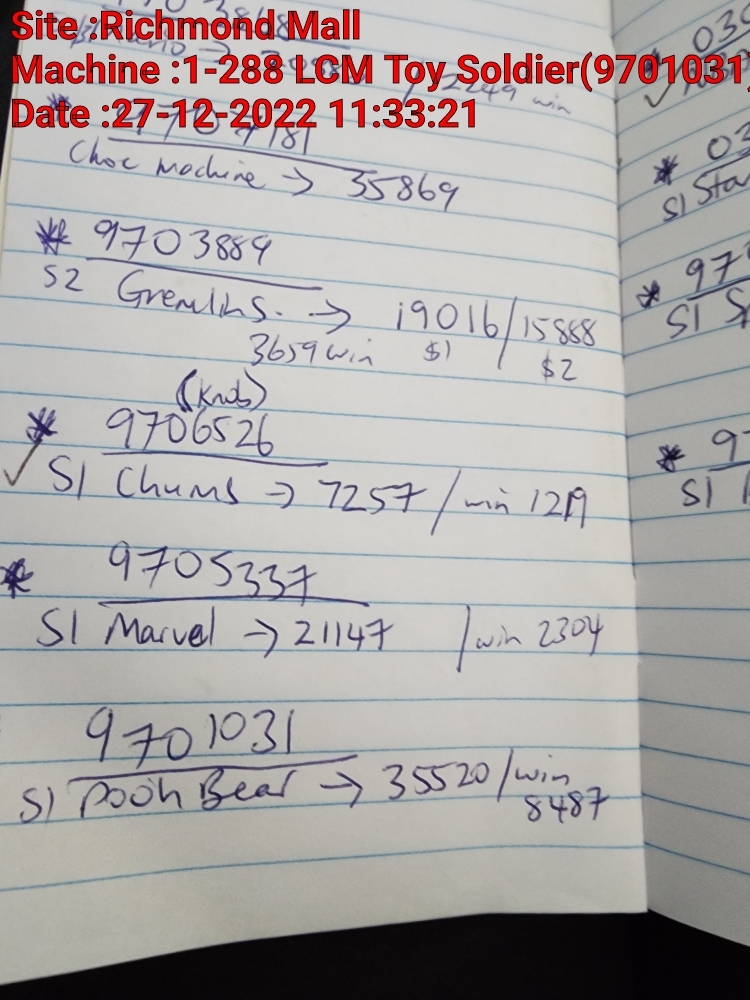 Site :Richmond Mall
Machine :1-288 LCM Toy Soldier(9701031)
Date :27-12-2022 11:33:21
2249 win
Choc machine → 35869
* 9703889
S2 Gremlins. → 19016/15888
3659 win $1 $2
(Knob)
* 9706526
✓ S1 Chums → 7257 / win 1219
* 9705337
S1 Marvel → 21147 / win 2304
9701031
S1 Pooh Bear → 35520 / win
8487
* 03
S1 Sta
* 97
S1 S
* 9
S1